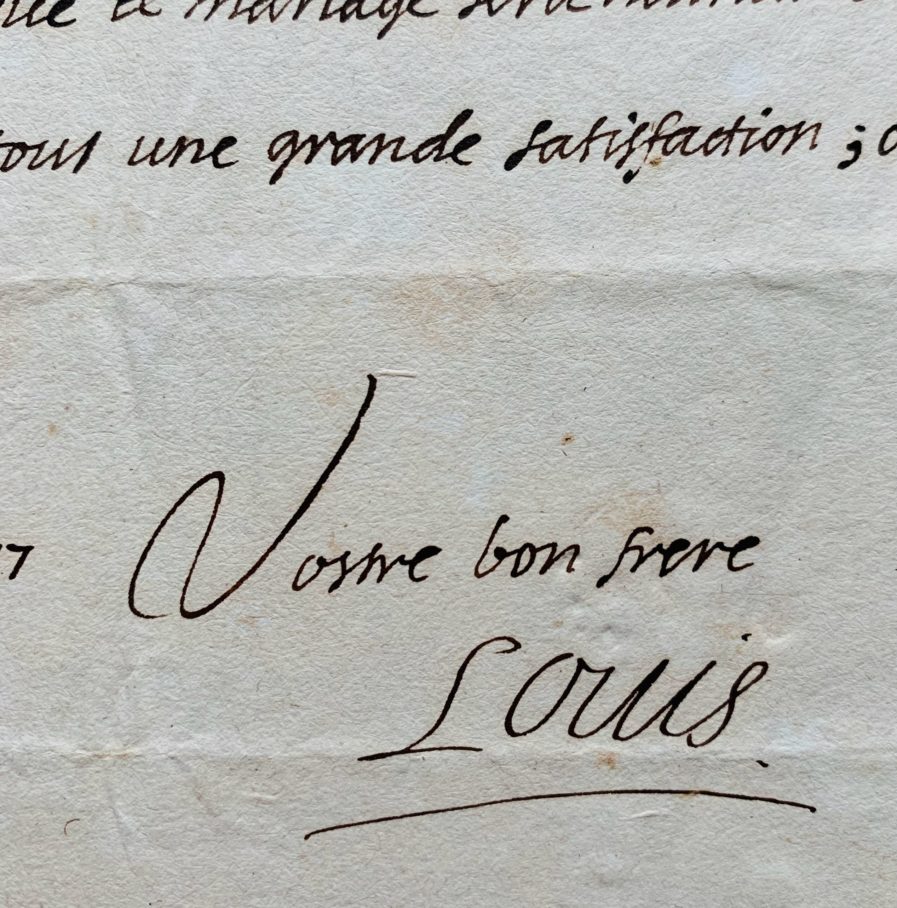 mariage
tous une grande satisfaction ;
7 Vostre bon frere
Louis